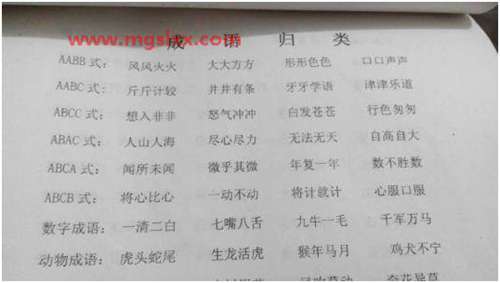 www.mgslxx.com
成 语 归 类
AABB 式: 风风火火 大大方方 形形色色 口口声声
AABC 式: 斤斤计较 井井有条 牙牙学语 津津乐道
ABCC 式: 想入非非 怒气冲冲 白发苍苍 行色匆匆
ABAC 式: 人山人海 尽心尽力 无法无天 自高自大
ABCA 式: 闻所未闻 微乎其微 年复一年 数不胜数
ABCB 式: 将心比心 一动不动 将计就计 心服口服
数字成语: 一清二白 七嘴八舌 九牛一毛 千军万马
动物成语: 虎头蛇尾 生龙活虎 猴年马月 鸡犬不宁